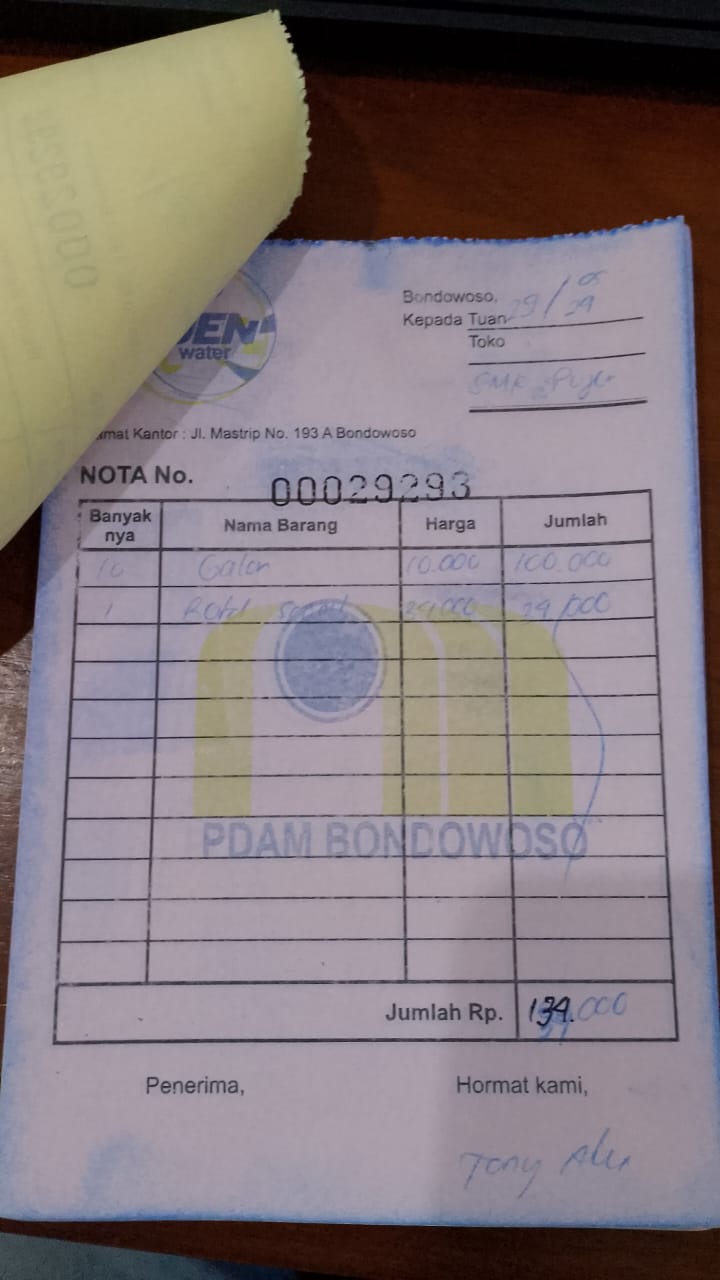 00029294
JEN
water
Bondowoso, 29/05
Kepada Tuan 24
Toko
SMK
mat Kantor : Jl. Mastrip No. 193 A Bondowoso
NOTA No. 00029293
Banyak nya Nama Barang Harga Jumlah
10 Galon 10.000 100.000
1 Botol 34,000
PDAM BONDOWOSO
Jumlah Rp. 134.000
Penerima, Hormat kami,
Tony